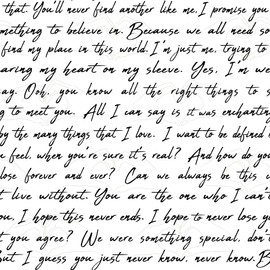 that. You'll never find another like me. I promise you
mething to believe in. Because we all need so
find my place in this world. I'm just me, trying to
aring my heart on my sleeve. Yes, I'm we
ay. Ooh, you know all the right things to s
g to meet you. All I can say is it was enchantin
by the many things that I love. I want to be defined
u feel, when you're sure it's real? And how do you
lose forever and ever? Can we always be this c
t live without. You are the one who I can't
ou, I hope this never ends, I hope to never lose yo
t you agree? We were something special, don't
but I guess you just never know, never know. B